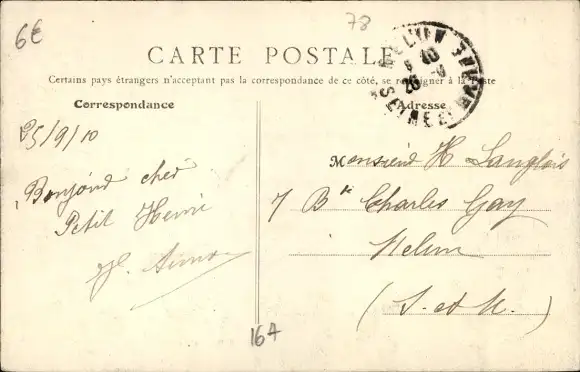 6€
78
CARTE POSTALE
Certains pays étrangers n'acceptant pas la correspondance de ce côté, se renseigner à la Poste
Correspondance
Adresse
MELUN
SEINE ET MARNE
25/9/10
Monsieur H Langlois
Bonjour cher
Petit Henri
7 Bd Charles Gay
Melun
(S. et M.)
16A